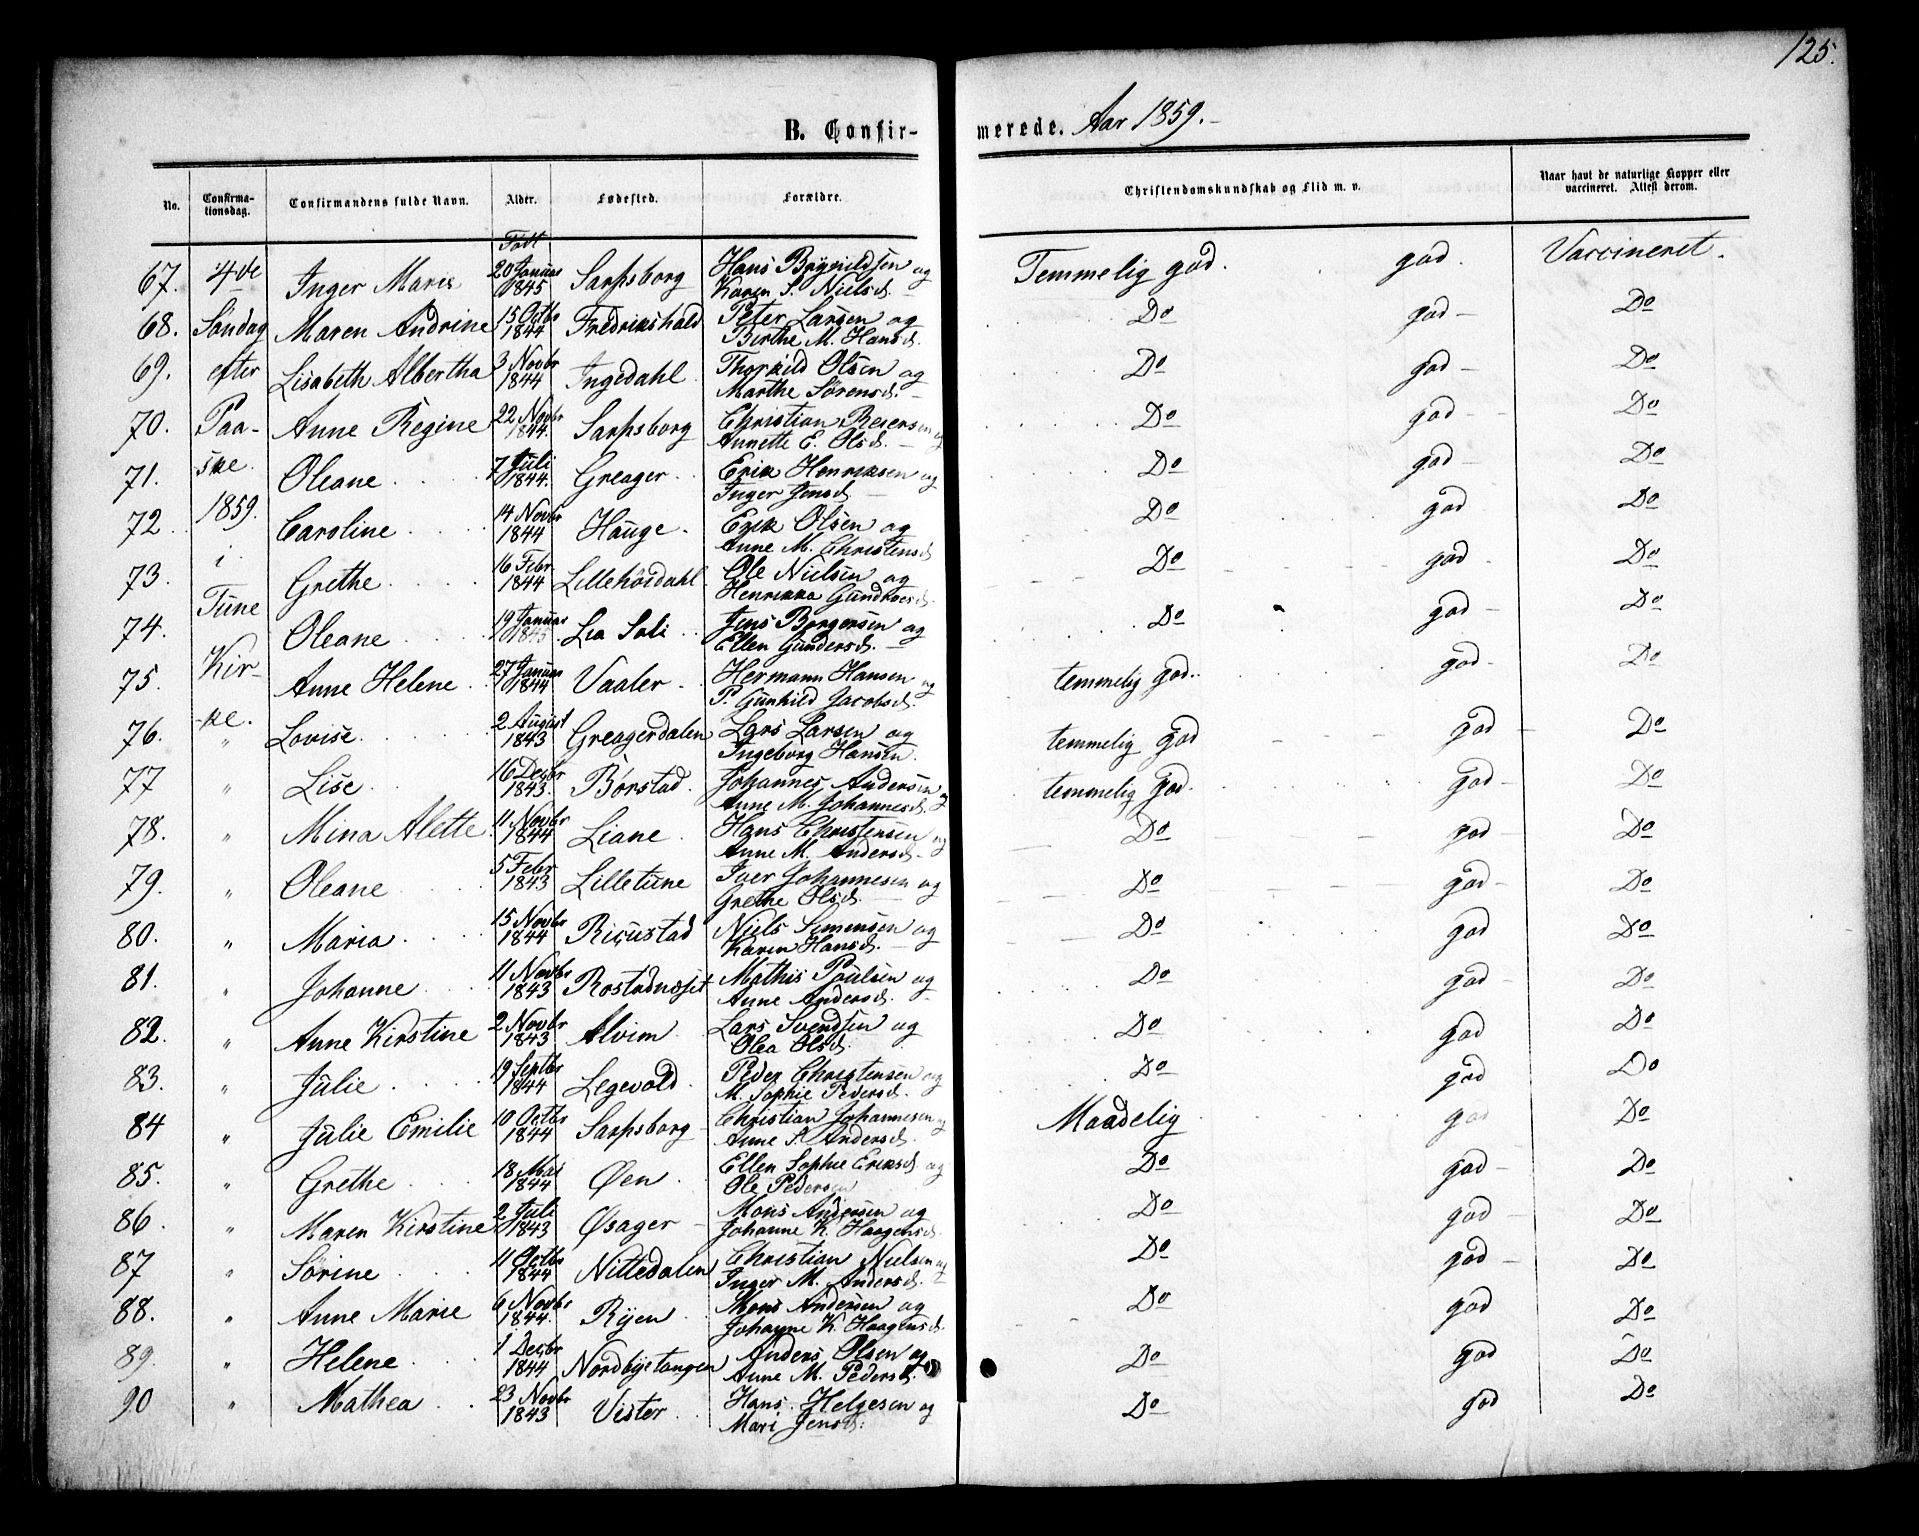 125.
B. Confirmerede. Aar 1859.-
No. Confirmationsdag. Confirmandens fulde Navn. Alder. Fødested. Forældre. Christendomskundskab og Flid m. v. Naar havt de naturlige Kopper eller vaccineret. Attest derom.
Født
67. 4de Inger Marie 20 Januar 1845 Sarpsborg Hans Brynildsen og Karen S. Nielsd. Temmelig god. god. Vaccineret.
68. Søndag Maren Andrine 15 Octbr 1844 Fredrikshald Peter Larsen og Birthe M. Hansd. Do god Do
69. efter Lisabeth Albertha 3 Novbr 1844 Ingedahl Thorkild Olsen og Marthe Sørensd. Do god Do
70. Paa- Anne Regine 22 Novbr 1844. Sarpsborg Christian Reiersen og Annette E. Olsd. Do god Do
71. ske. Oleane 7 Juli 1844. Greager Erik Henriksen og Inger Jensd. Do god Do
72. 1859. Caroline 14 Novbr 1844 Hauge Erik Olsen og Anne M. Christensd. Do god Do
73. i Grethe 16 Febr 1844 Lillehøidahl Ole Nielsen og Henrikka Gundroesd. Do god Do
74. Tune Oleane 19 Januar 1845 Lea Soli Jens Borgersen og Ellen Gundersd. Do god Do
75. Kir- Anne Helene 27 Januar 1844 Vaaler Hermann Hansen og P. Gunhild Jacobsd. temmelig god. god Do
76. -ke. " Lovise 2 August 1843 Greagerdalen Lars Larsen og Ingeborg Hansen. temmelig god god Do
77 " Lise 16 Decbr 1843. Børstad Johannes Andersen og Anne M. Johannesd. temmelig god. god Do
78. " Mina Alette 11 Novbr 1844 Liane Hans Christensen og Anne M. Andersd. Do god Do
79. " Oleane 5 Febr 1843 Lilletune Iver Johannesen og Grethe Olsd. Do god Do
80. " Maria 15 Novbr 1844 Niels Simensen og Karen Hansd. Do god Do
81. " Johanne 11 Novbr 1843 Rostadnæset Mathis Poulsen og Anne Andersd. Do god Do
82. " Anne Kirstine 2 Novbr 1843 Alvim Lars Svendsen og Olea Olsd. Do god Do
83. " Julie 19 Septbr 1844 Legevold Peder Christensen og M. Sophie Pedersd. Do god Do
84 " Julie Emilie 10 Octbr 1844 Sarpsborg Christian Johannesen og Anne S. Andersd. Maadelig god Do
85. " Grethe 18 Mai 1844 Øen Ellen Sophie Eriksd og Ole Pedersen Do god Do
86. " Maren Kirstine 2 Juli 1843 Øsager Mons Andersen og Johanne K. Haagensd. Do god Do
87 " Sørine 11 Octbr 1844 Nittedalen Christian Nielsen og Inger M. Andersd. Do god Do
88. " Anne Marie 6 Novbr 1844. Ryen Mons Andersen og Johanne K. Haagensd. Do god Do
89. " Helene 1 Decbr 1844 Nordbyetangen Anders Olsen og Anne M. Pedersd. Do god Do
90 " Mathea 23 Novbr 1843 Vister Hans Helgesen og Mari Jensd. Do god Do